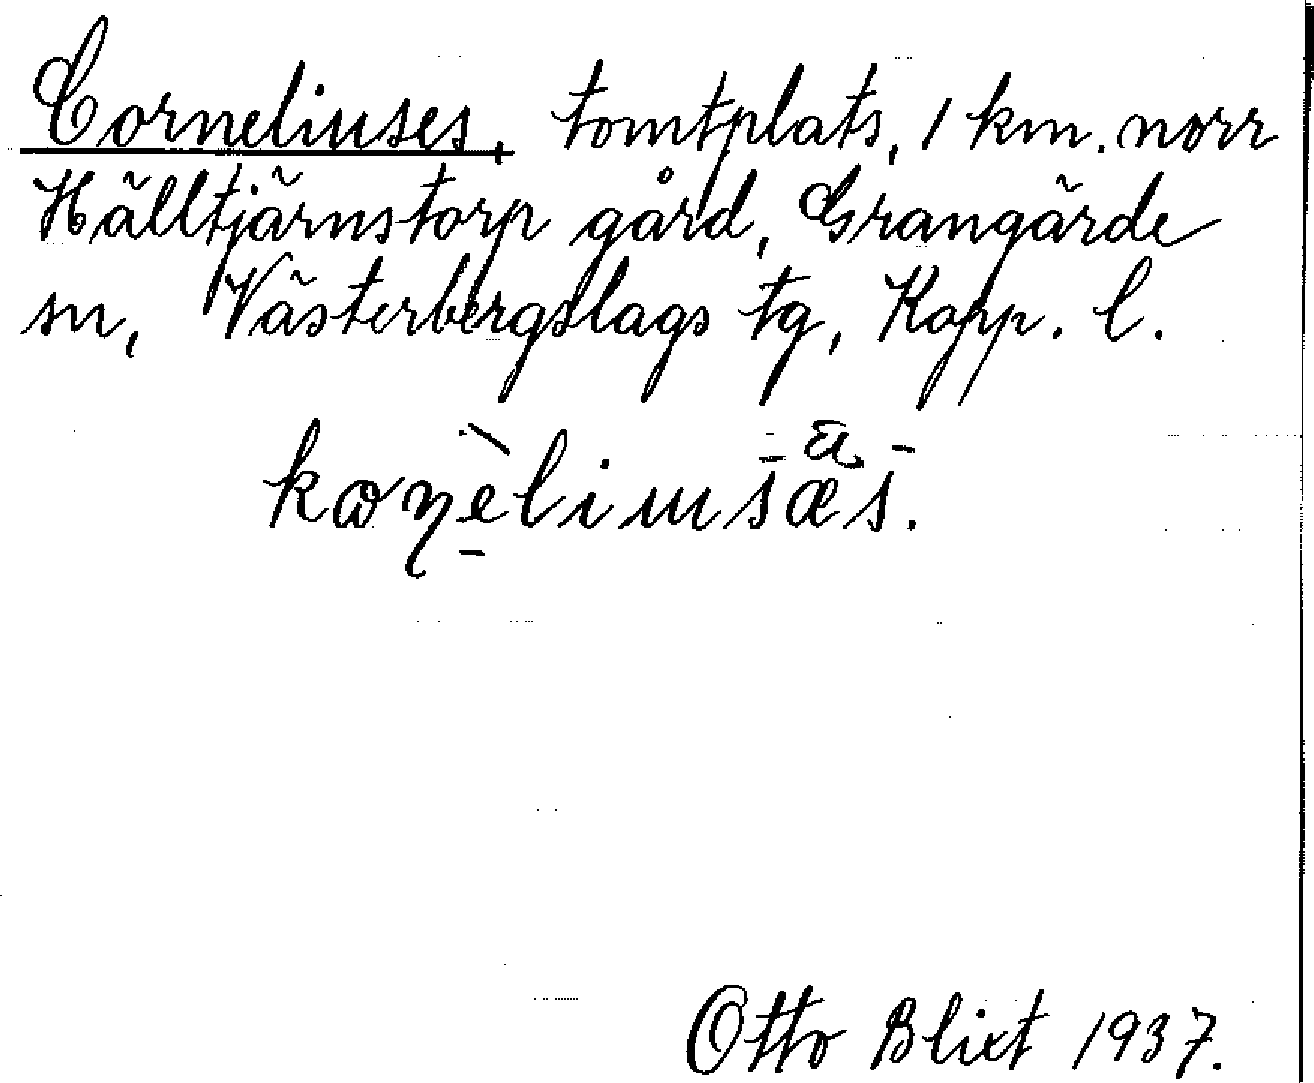 Corneliuses, tomtplats, 1 km. norr
Hälltjärnstorp gård, Grangärde
sn, Västerbergslags tg, Kopp. l.
Otto Blixt 1937.